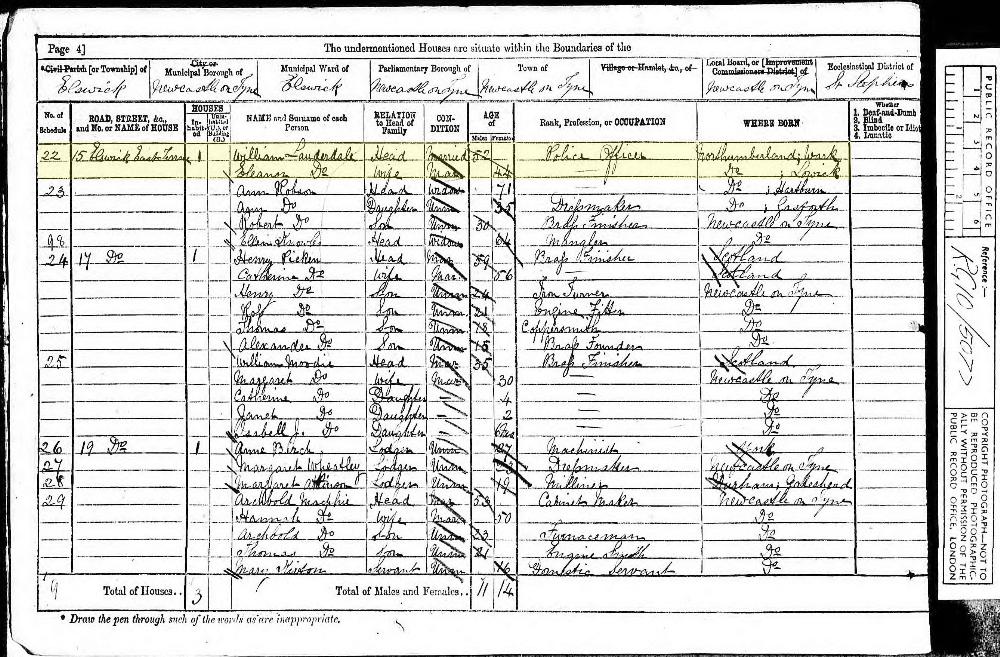 Page 4]
The undermentioned Houses are situate within the Boundaries of the
*Civil Parish [or Township] of
City or Municipal Borough of
Municipal Ward of
Parliamentary Borough of
Town of
Village or Hamlet, &c., of
Local Board, or [Improvement Commissioners District] of
Ecclesiastical District of
Elswick Newcastle on Tyne Elswick Newcastle on Tyne Newcastle on Tyne Newcastle on Tyne St Stephens
No. of Schedule
ROAD, STREET, &c., and No. or NAME of HOUSE
HOUSES
NAME and Surname of each Person
RELATION to Head of Family
CONDITION
AGE of
Males Females
Rank, Profession, or OCCUPATION
WHERE BORN
Whether
1. Deaf-and-Dumb
2. Blind
3. Imbecile or Idiot
4. Lunatic
22 15 Elswick East Terrace 1 William Lauderdale Head Married 52 Police Officer Northumberland; Wark
Eleanor Do Wife Mar 44 Do ; Lowick
23 Ann Robson Head Widow 71 Do ; Hartburn
Do Daughter Unm 35 Dressmaker Do ; Gosforth
Robert Do Son Unm 30 Brass Finisher Newcastle on Tyne
98 Head Widow 64 Mangler Do
24 17 Do 1 Henry Head Mar 59 Brass Finisher Scotland
Catherine Do Wife Mar 56 Scotland
Henry Do Son Unm 24 Iron Turner Newcastle on Tyne
Do Son Unm 21 Engine Fitter Do
Thomas Do Son Unm 18 Coppersmith Do
Alexander Do Son Unm 15 Brass Founder Do
25 William Moodie Head Mar 35 Brass Finisher Scotland
Margaret Do Wife Mar 30 Newcastle on Tyne
Catherine Do Daughter 4 Do
Janet Do Daughter 2 Do
Isabell J. Do Daughter Do
26 19 Do 1 Anne Birch Lodger Unm 27 Machinist
27 Margaret Wheatley Lodger Unm Dressmaker Newcastle on Tyne
28 Margaret Lodger Unm 19 Milliner Durham; Gateshead
29 Archbold Head Mar 53 Cabinet Maker Newcastle on Tyne
Hannah Do Wife Mar 50 Do
Archbold Do Son Unm 23 Furnaceman Do
Thomas Do Son Unm 21 Engine Smith Do
Mary Servant Unm 16 Domestic Servant Do
Total of Houses.. 3 Total of Males and Females.. 11 14
* Draw the pen through such of the words as are inappropriate.
PUBLIC RECORD OFFICE
1 2 3 4 5 6
Reference:-
RG10/5077
COPYRIGHT PHOTOGRAPH—NOT TO
BE REPRODUCED PHOTOGRAPHIC-
ALLY WITHOUT PERMISSION OF THE
PUBLIC RECORD OFFICE, LONDON